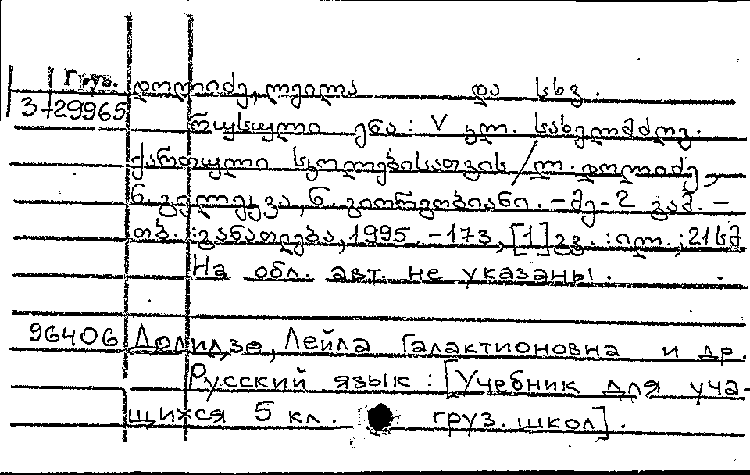 Груз. დოლიძე, ლეილა და სხვ.
3-29965
რუსული ენა : V კლ. სახელმძღვ.
ქართული სკოლებისათვის / ლ. დოლიძე,
ნ. გიორგობიანი. - მე-2 გამ. -
თბ. : განათლება, 1995. - 173, [1] გვ. : ილ. ; 21 სმ
На обл. авт. не указаны.
96406 Долидзе, Лейла Галактионовна и др.
Русский язык : [Учебник для уча-
щихся 5 кл. груз. школ].